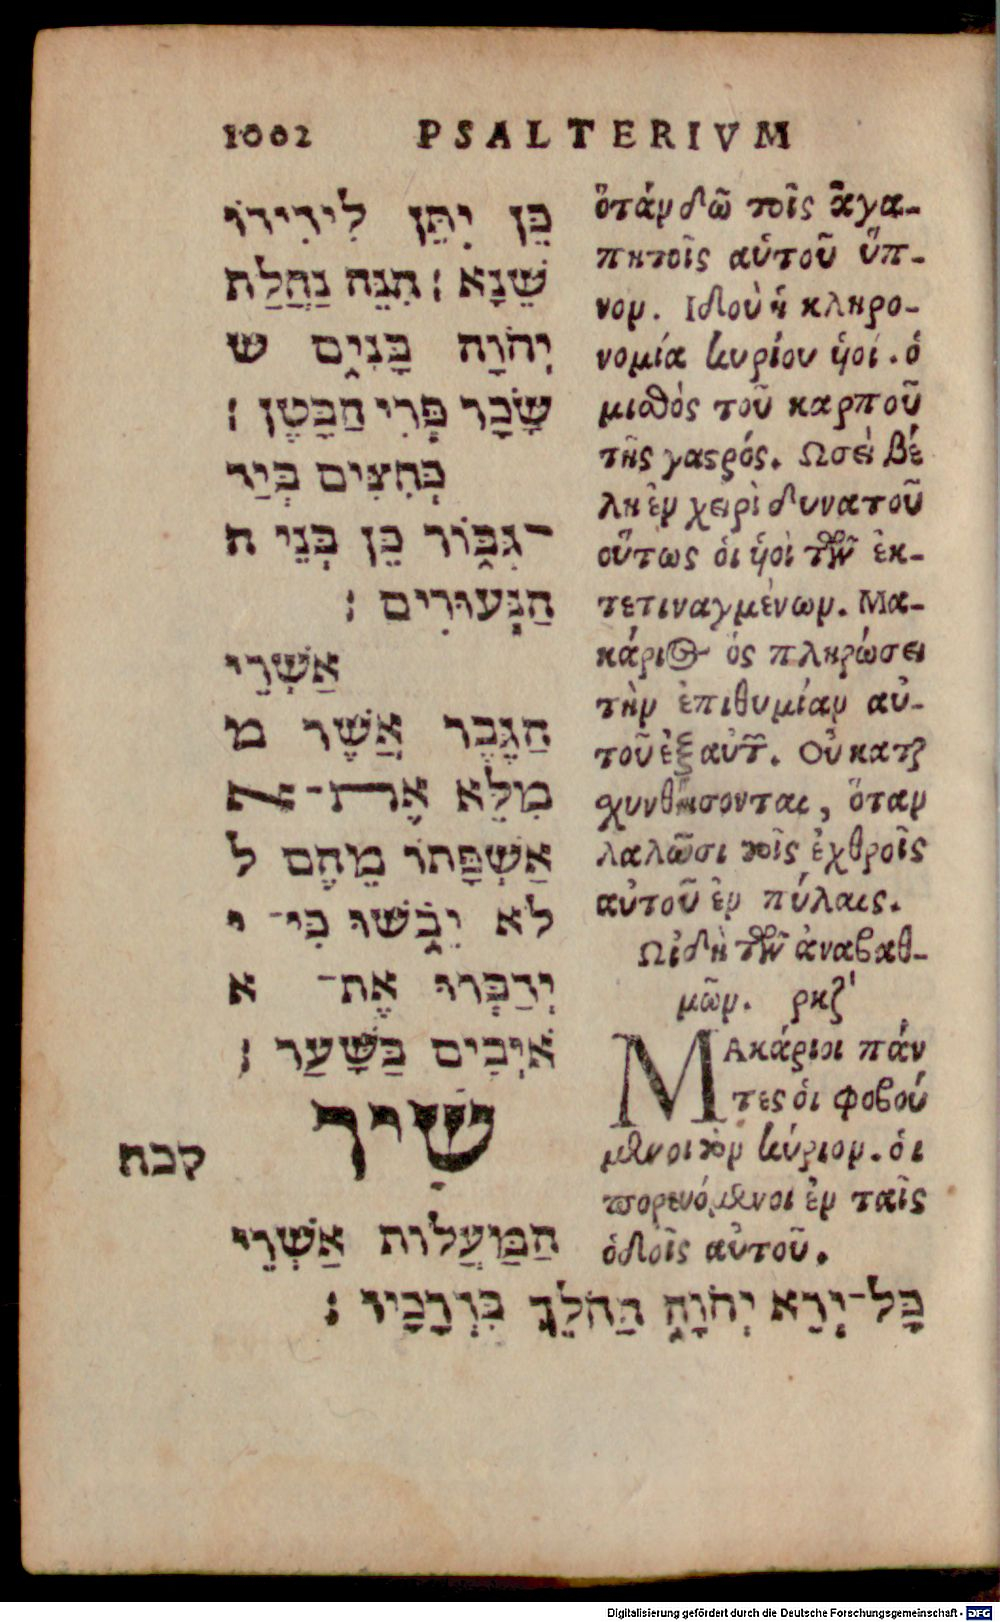 1002 PSALTERIVM
כֵּן יִתֵּן לִידִידוֹ
שֵׁנָא׃ הִנֵּה נַחֲלַת
יְהֹוָה בָּנִים ש
שָׂכָר פְּרִי הַבָּטֶן׃
כְּחִצִּים בְּיַד
־גִּבּוֹר כֵּן בְּנֵי ה
הַנְּעוּרִים׃
אַשְׁרֵי
הַגֶּבֶר אֲשֶׁר מ
מִלֵּא אֶת־א
אַשְׁפָּתוֹ מֵהֶם ל
לֹא יֵבֹשׁוּ כִּי־ י
יְדַבְּרוּ אֶת־ א
אֹיְבִים בַּשָּׁעַר׃
שִׁיר
קכח
הַמַּעֲלוֹת אַשְׁרֵי
כָּל־יְרֵא יְהֹוָה הַהֹלֵךְ בִּדְרָכָיו׃
ὅταν δῶ τοῖς ἀγα-
πητοῖς αὑτοῦ ὕπ-
νον. Ιδοὺ ἡ κληρο-
νομία κυρίου ὑοί. ὁ
μισθὸς τοῦ καρποῦ
τῆς γαστρός. Ωσεὶ βέ
λη ἐν χειρὶ δυνατοῦ
οὕτως οἱ ὑοὶ τῶν ἐκ-
τετιναγμένων. Μα-
κάριος ὃς πληρώσει
τὴν ἐπιθυμίαν αὑ-
τοῦ ἐξ αὐτῶν. Οὐ κατς
χυνθήσονται, ὅταν
λαλῶσι τοῖς ἐχθροῖς
αὑτοῦ ἐν πύλαις.
Ωἰδὴ τῶν ἀναβαθ-
μῶν. ρκζʹ
ΜΑκάριοι πάν
τες οἱ φοβού
μενοι τὸν κύριον. οἱ
πορευόμενοι ἐν ταῖς
ὁδοῖς αὐτοῦ.
Digitalisierung gefördert durch die Deutsche Forschungsgemeinschaft - DFG